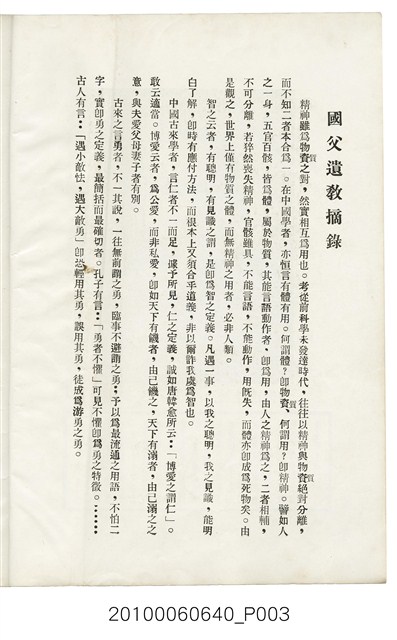 國父遺教摘錄
精神雖爲物質之對，然實相互爲用也。考從前科學未發達時代，往往以精神與物質絕對分離，
而不知二者本合爲一。在中國學者，亦恒言有體有用。何謂體？卽物質、何謂用？卽精神。譬如人
之一身，五官百骸，皆爲體，屬於物質，其能言語動作者，卽爲用，由人之精神爲之，二者相輔，
不可分離，若猝然喪失精神，官骸雖具，不能言語，不能動作，用旣失，而體亦卽成爲死物矣。由
是觀之，世界上僅有物質之體，而無精神之用者，必非人類。
智之云者，有聰明，有見識之謂，是卽爲智之定義。凡遇一事，以我之聰明，我之見識，能明
白了解，卽時有應付方法，而根本上又須合乎道義，非以爾詐我虞爲智也。
中國古來學者，言仁者不一而足，據予所見，仁之定義，誠如唐韓愈所云：「博愛之謂仁」。
敢云適當。博愛云者，爲公愛，而非私愛，卽如天下有饑者，由己饑之，天下有溺者，由己溺之之
意，與夫愛父母妻子者有別。
古來之言勇者，不一其說，一往無前謂之勇，臨事不避謂之勇：予以爲最流通之用語，不怕二
字，實卽勇之定義，最簡括而最確切者。孔子有言：「勇者不懼」可見不懼卽爲勇之特徵。……
古人有言：「遇小敵怯，遇大敵勇」卽恐輕用其勇，誤用其勇，徒成爲游勇之勇。
20100060640_P003